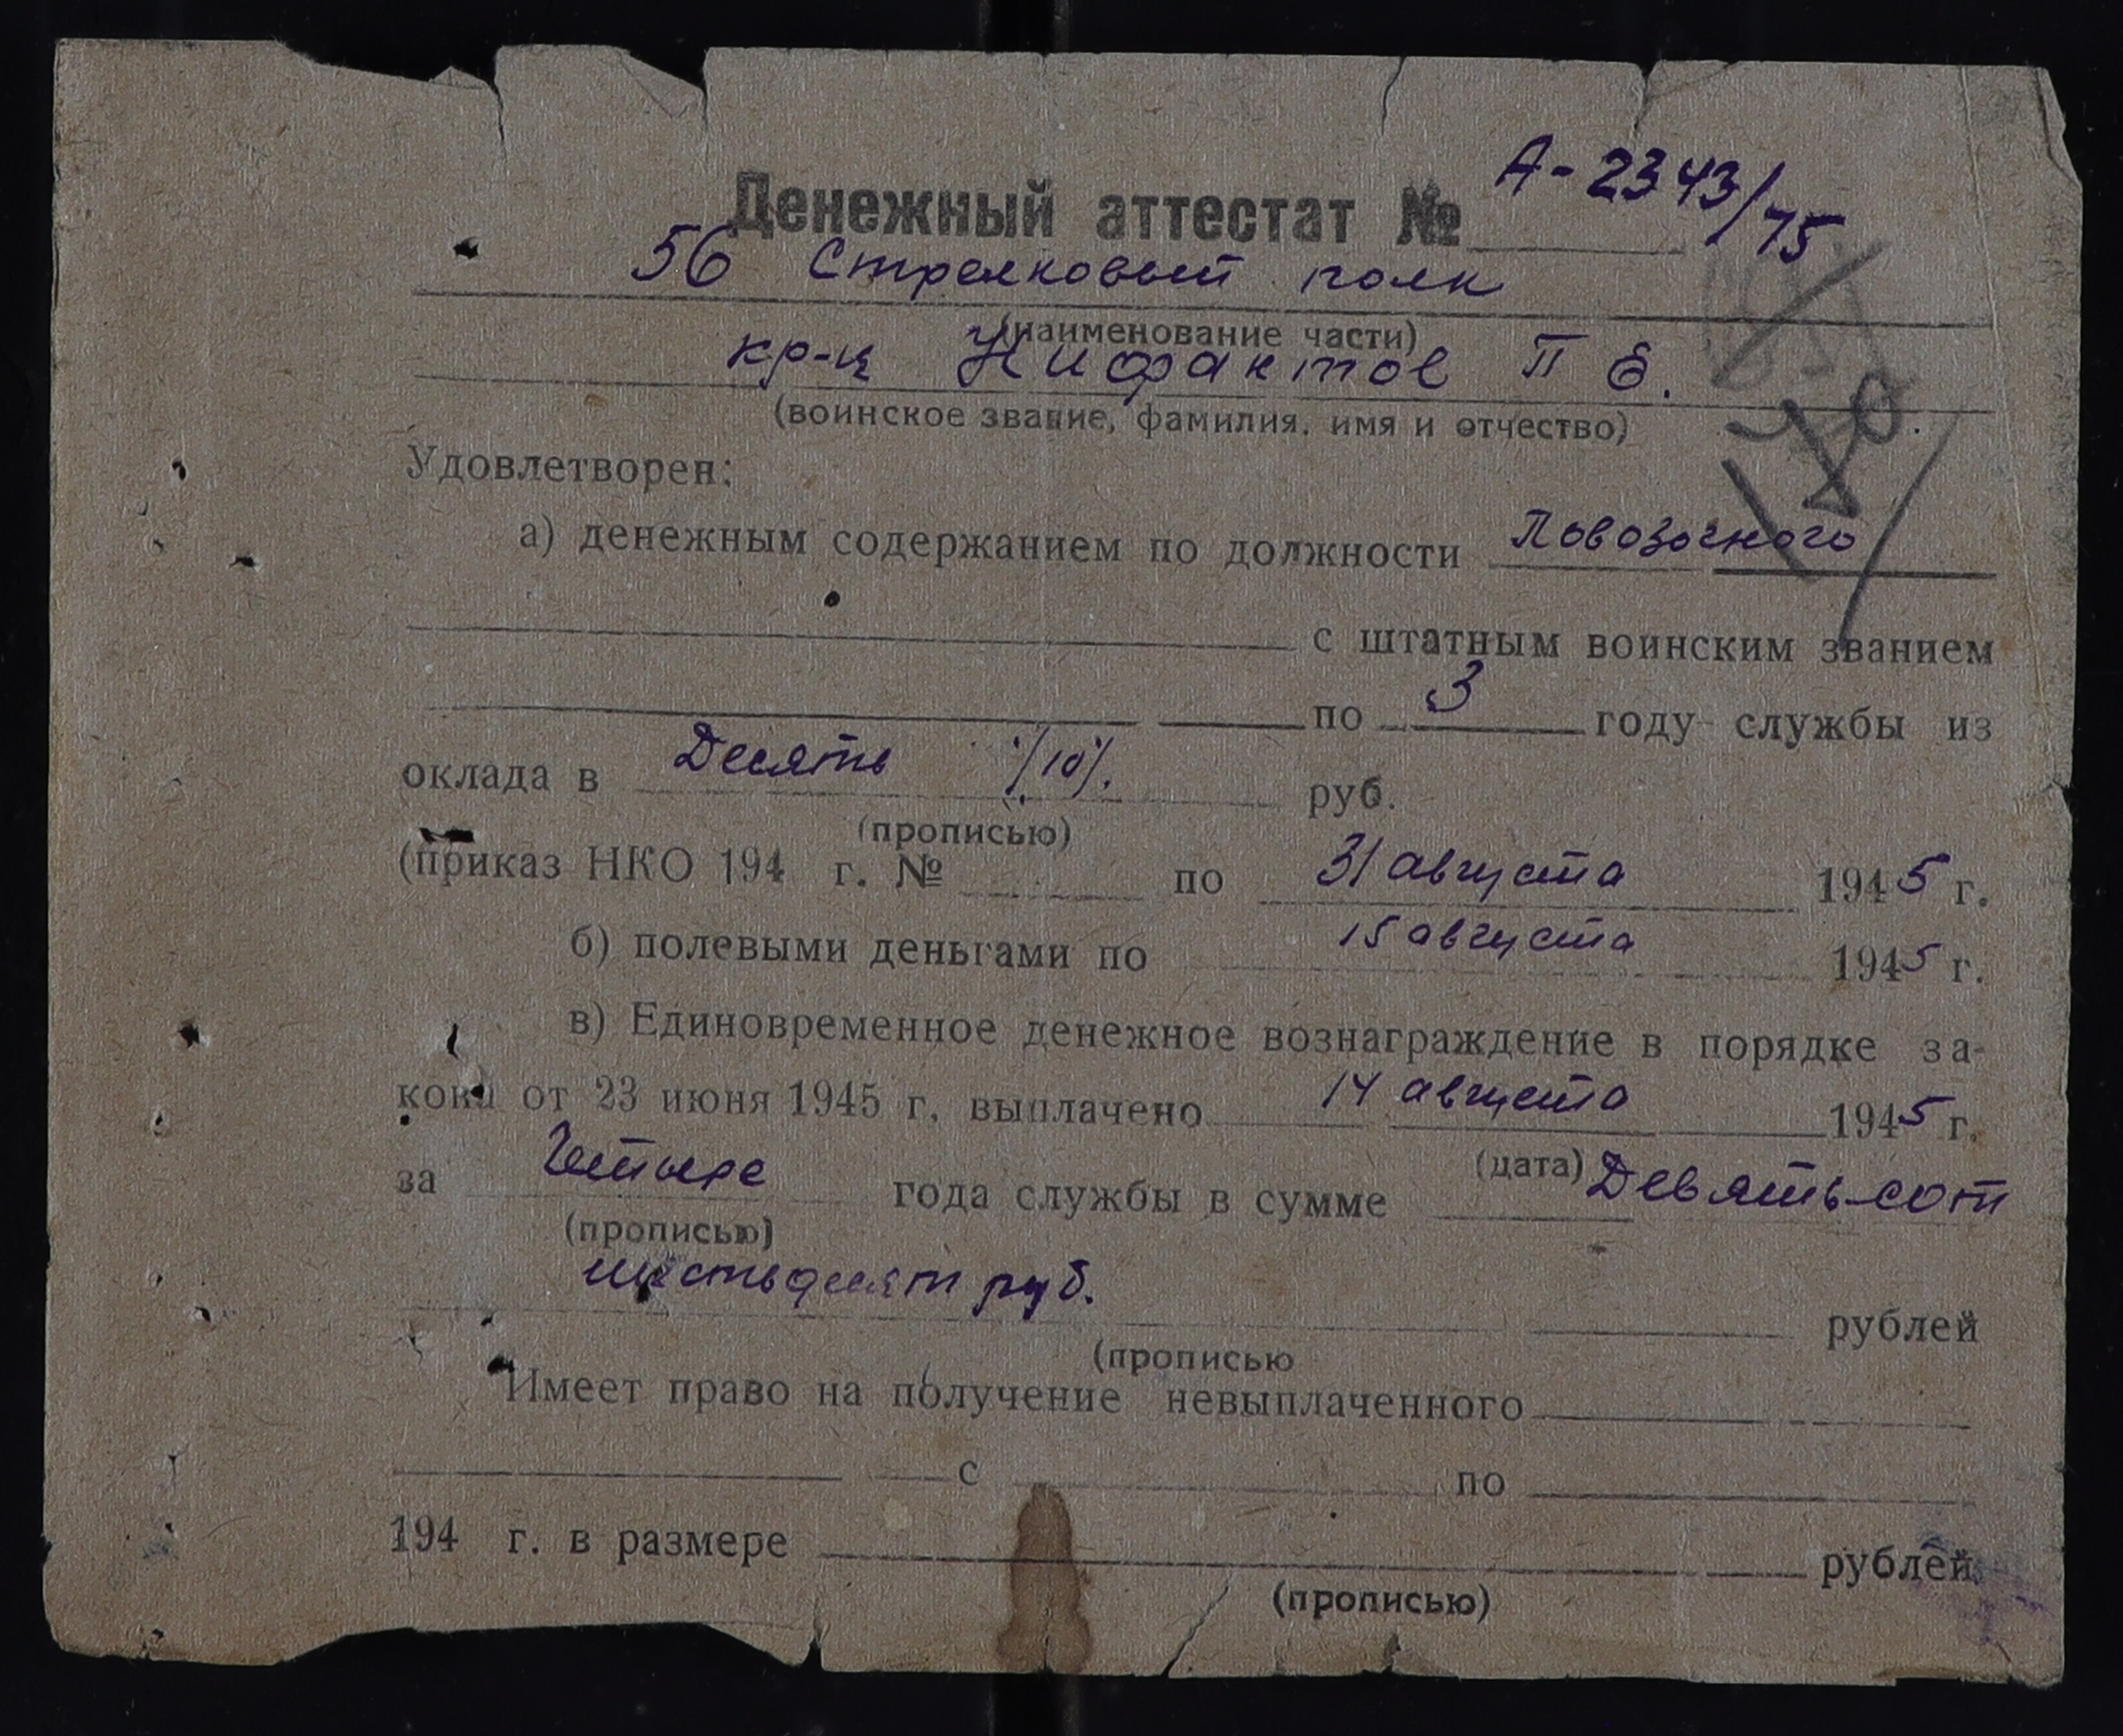 Денежный аттестат № А-2343/75
56 Стрелковый полк
(наименование части)
кр-ц Нифантов П Е.
(воинское звание, фамилия, имя и отчество)
Удовлетворен:
а) денежным содержанием по должности Повозочного
с штатным воинским званием
по 3 году службы из
оклада в Десять /10/. руб.
(прописью)
(приказ НКО 194 г. № по 31 августа 1945 г.
б) полевыми деньгами по 15 августа 1945 г.
в) Единовременное денежное вознаграждение в порядке за-
кона от 23 июня 1945 г. выплачено 14 августа 1945 г.
(дата)
за Четыре года службы в сумме Девятьсот
(прописью)
шестьдесят руб. рублей
(прописью
Имеет право на получение невыплаченного
с по
194 г. в размере рублей
(прописью)